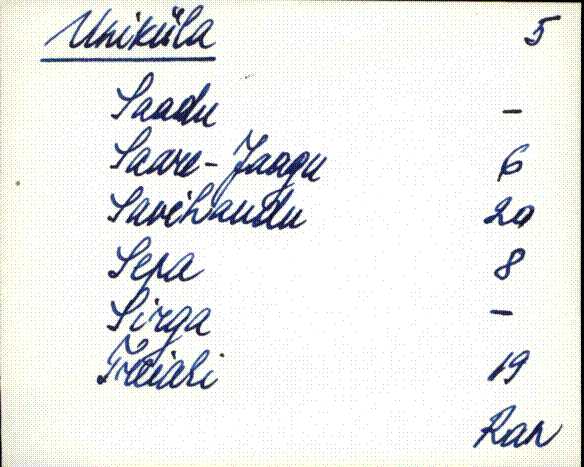 Uniküla 5
Saadu -
Saare-Jaagu 6
Savihaudu 20
Sepa 8
Sirga -
19
Ran